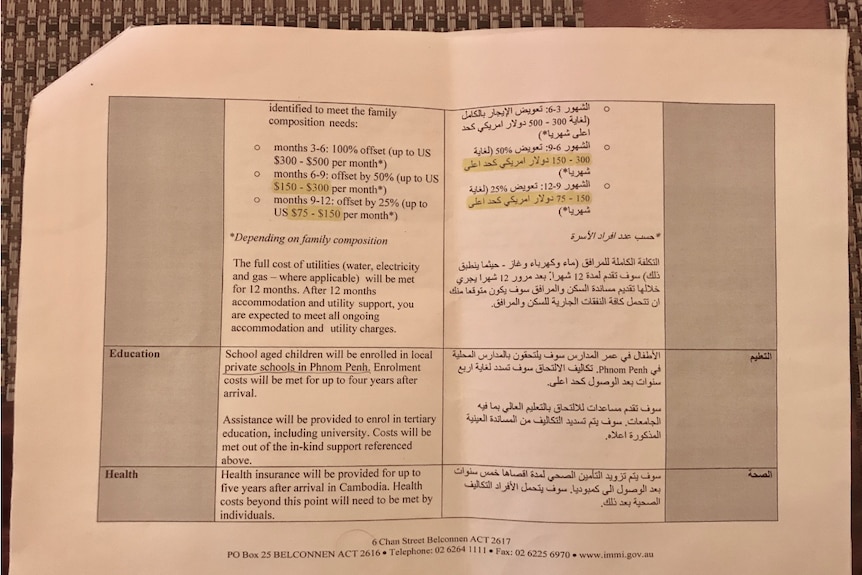 identified to meet the family
composition needs:
○ months 3-6: 100% offset (up to US
$300 - $500 per month*)
○ months 6-9: offset by 50% (up to US
$150 - $300 per month*)
○ months 9-12: offset by 25% (up to
US $75 - $150 per month*)
*Depending on family composition
The full cost of utilities (water, electricity
and gas – where applicable) will be met
for 12 months. After 12 months
accommodation and utility support, you
are expected to meet all ongoing
accommodation and utility charges.
○ الشهور 3-6: تعويض الإيجار بالكامل
(لغاية 300 - 500 دولار امريكي كحد
اعلى شهريا*)
○ الشهور 6-9: تعويض 50% (لغاية
150 - 300 دولار امريكي كحد اعلى
شهريا*)
○ الشهور 9-12: تعويض 25% (لغاية
75 - 150 دولار امريكي كحد اعلى
شهريا*)
*حسب عدد افراد الأسرة
التكلفة الكاملة للمرافق (ماء وكهرباء وغاز - حيثما ينطبق
ذلك) سوف تقدم لمدة 12 شهرا. بعد مرور 12 شهرا يجري
خلالها تقديم مساندة السكن والمرافق سوف يكون متوقعا منك
ان تتحمل كافة النفقات الجارية للسكن والمرافق.
Education
School aged children will be enrolled in local
private schools in Phnom Penh. Enrolment
costs will be met for up to four years after
arrival.
Assistance will be provided to enrol in tertiary
education, including university. Costs will be
met out of the in-kind support referenced
above.
الأطفال في عمر المدارس سوف يلتحقون بالمدارس المحلية
في Phnom Penh. تكاليف الالتحاق سوف تسدد لغاية اربع
سنوات بعد الوصول كحد اعلى.
سوف تقدم مساعدات للالتحاق بالتعليم العالي بما فيه
الجامعات. سوف يتم تسديد التكاليف من المساندة العينية
المذكورة اعلاه.
التعليم
Health
Health insurance will be provided for up to
five years after arrival in Cambodia. Health
costs beyond this point will need to be met by
individuals.
سوف يتم تزويد التأمين الصحي لمدة اقصاها خمس سنوات
بعد الوصول الى كمبوديا. سوف يتحمل الأفراد التكاليف
الصحية بعد ذلك.
الصحة
6 Chan Street Belconnen ACT 2617
PO Box 25 BELCONNEN ACT 2616 • Telephone: 02 6264 1111 • Fax: 02 6225 6970 • www.immi.gov.au